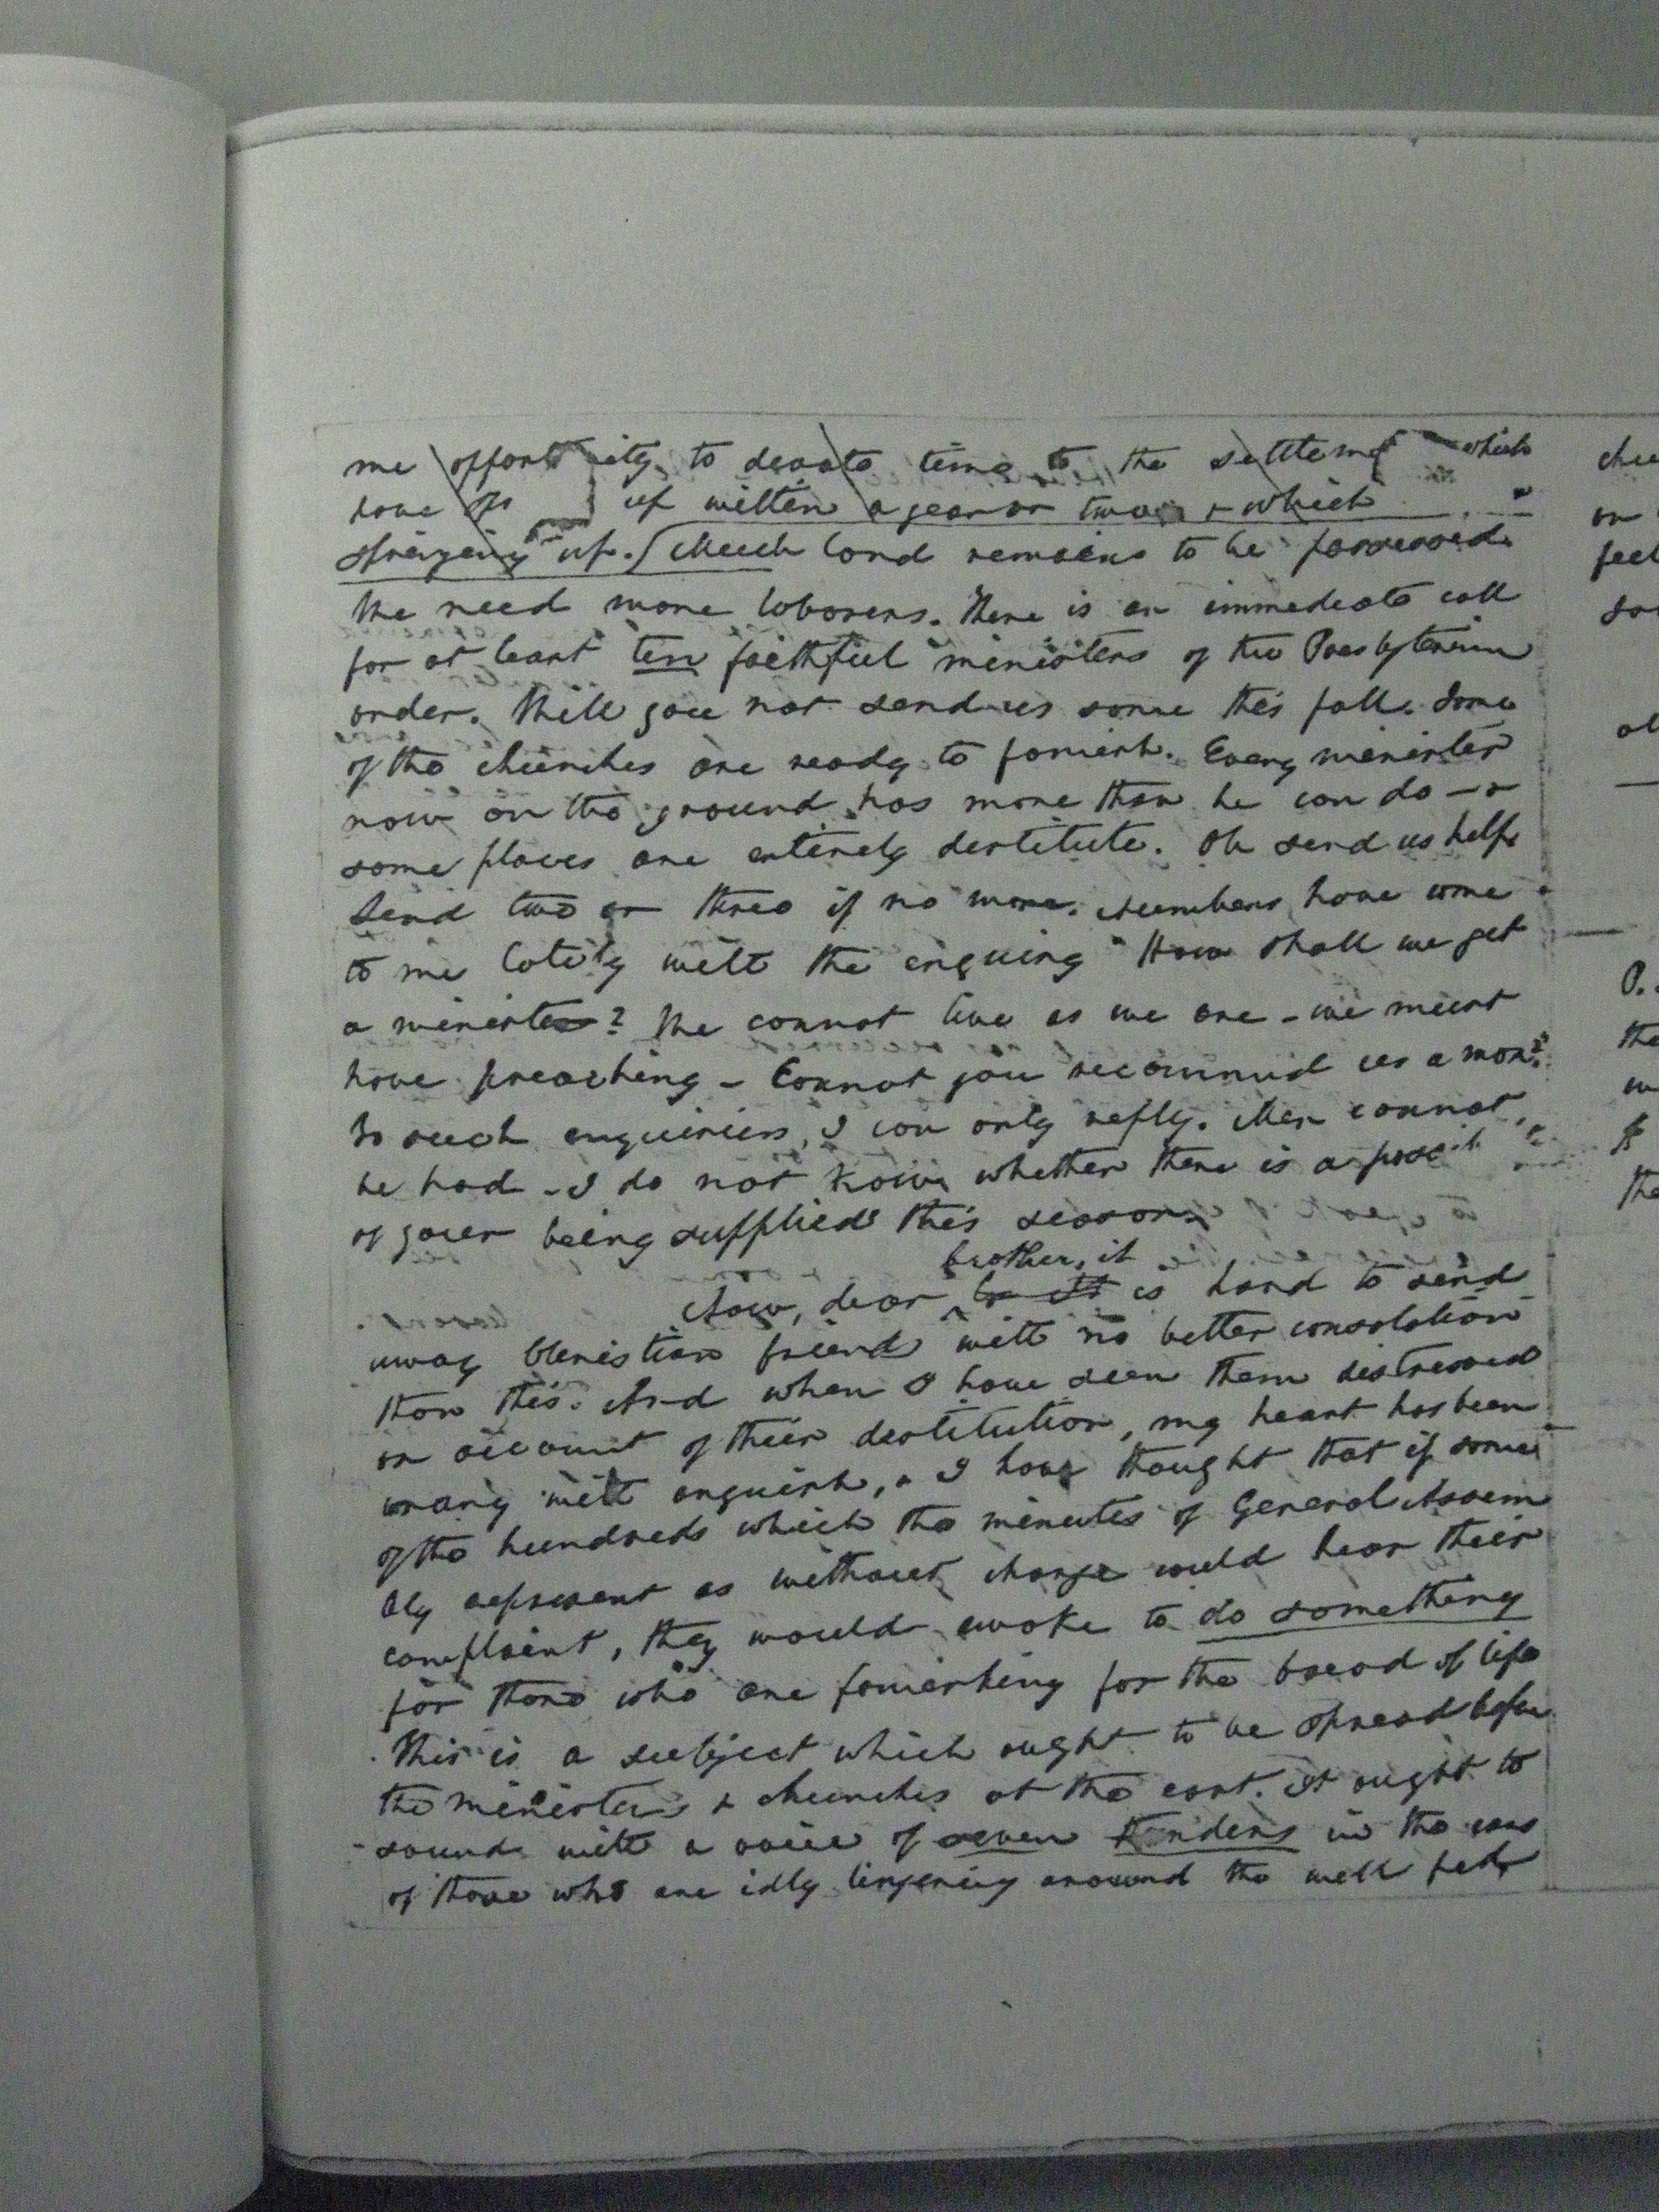 me opportunity to devote time to the settlem which
have up within a year or two & which
springing up. Much land remains to be possessed.
We need more laborers. There is an immediate call
for at least ten faithful ministers of the Presbyterian
order. Will you not send us some this fall. Some
of the churches are ready to famish. Every minister
now on the ground has more than he can do - &
some places are entirely destitute. Oh send us help
Send two or three if no more. Numbers have come
to me lately with the enquiry "How shall we get
a minister? We cannot live as we are - we must
have preaching - Cannot you recommend us a man?"
To such enquiries, I can only reply. Men cannot
be had - I do not know whether there is a
of your being supplied this season.
brother, it
Now, dear is hard to send
away Christian friends with no better consolation
than this. And when I have seen them distressed
on account of their destitution, my heart has been
wrung with anguish, & I have thought that if some
of the hundreds which the minutes of General Assem
bly represent as without charge could hear their
complaint, they would awake to do something
for those who are famishing for the bread of life
This is a subject which ought to be spread before
the ministers & churches at the east. It ought to
sound with a voice of seven thunders in the ears
of those who are idly lingering around the well fed
chu
on
feel
ol
P.
the
the